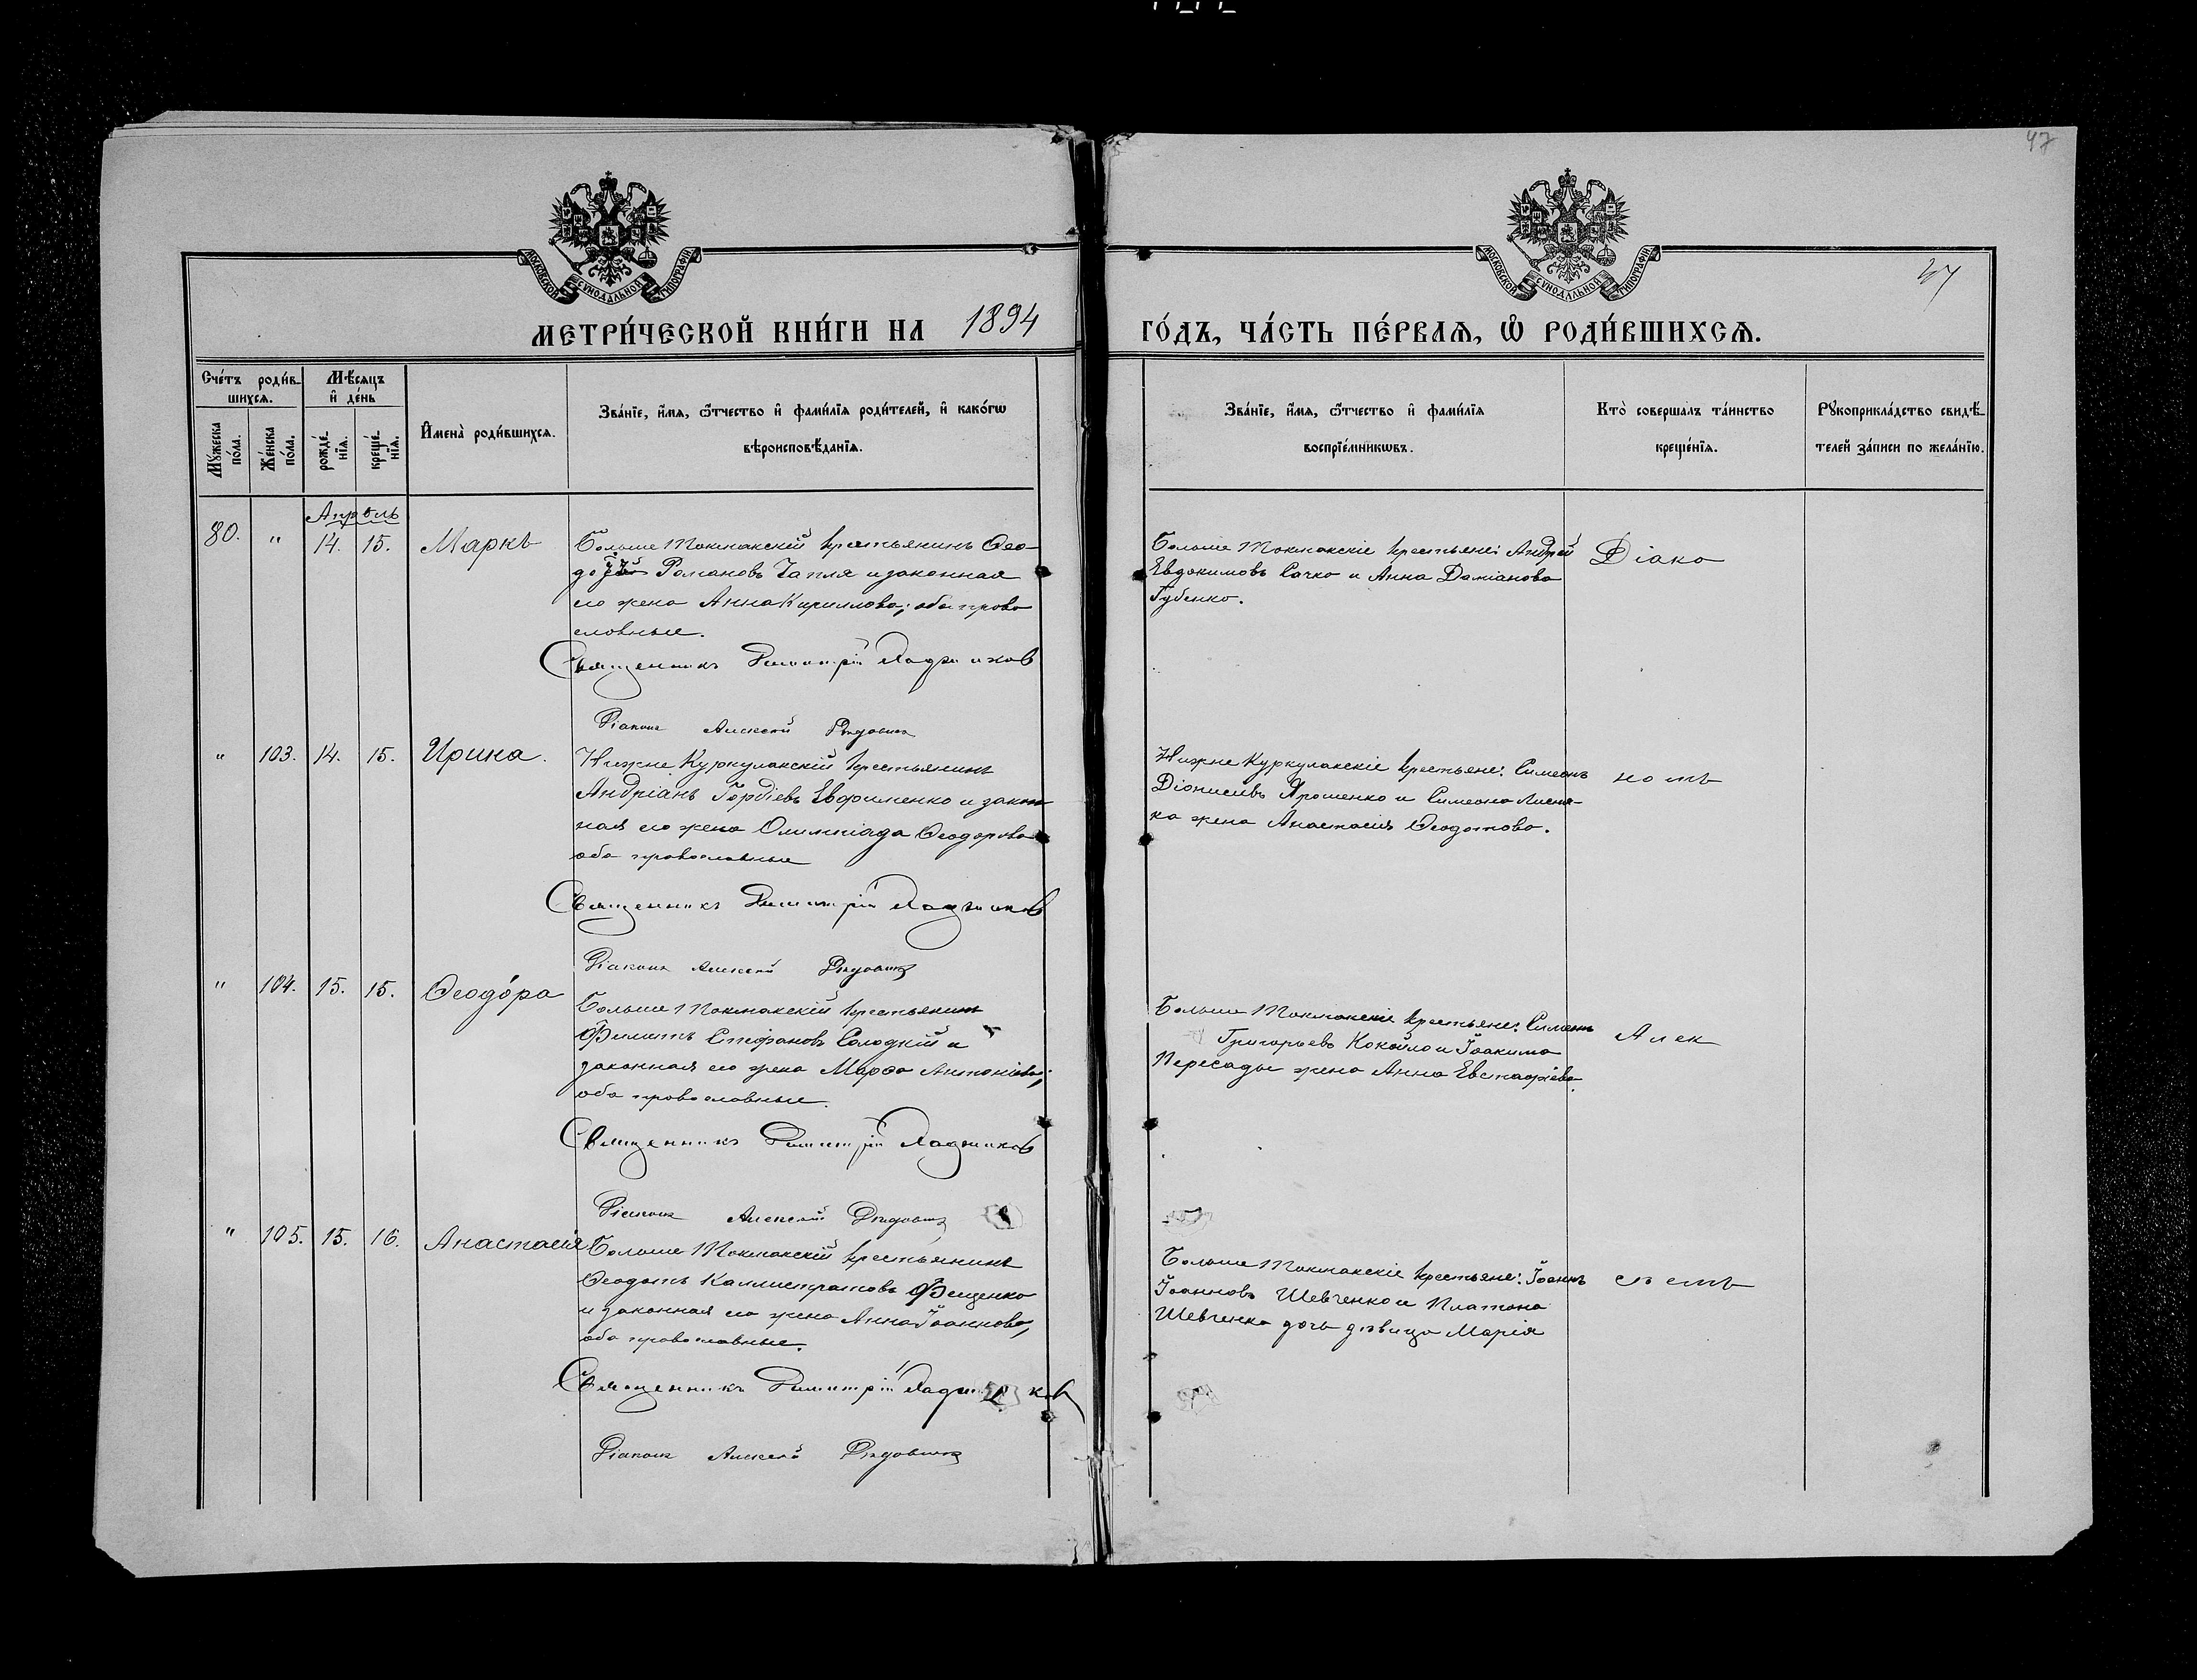 47
МОСКОВСКОЙ СѴНОДАЛЬНОЙ ТИПОГРАФІИ
МОСКОВСКОЙ СѴНОДАЛЬНОЙ ТИПОГРАФІИ
МЕТРИ́ЧЕСКОЙ КНИ́ГИ НА 1894 ГО́ДЪ, ЧА́СТЬ ПЕ́РВАѦ, Ѡ҆ РОДИ́ВШИХСѦ.
Сче́тъ роди́в-
шихсѧ.
Мꙋ́жеска по́ла.
Же́нска по́ла.
Мѣ́сѧцъ
и҆ де́нь
рожде́-нїѧ.
креще́-нїѧ.
И҆мена̀ роди́вшихсѧ.
Зва́нїе, и҆́мѧ, ѻ҆́тчество и҆ фами́лїѧ роди́телей, и҆ како́гѡ
вѣроисповѣ́данїѧ.
Зва́нїе, и҆́мѧ, ѻ҆́тчество и҆ фами́лїѧ
воспрїе́мникѡвъ.
Кто̀ соверша́лъ та́инство
креще́нїѧ.
Рꙋкоприкла́дство свидѣ́-
телей за́писи по жела́нїю.
Апрѣль
80. " 14. 15. Маркъ
Больше Токмакскій крестьянинъ Ѳео-
Романовъ Чапля и законная
его жена Анна Кириллова; оба право
славные.
Священникъ Димитрій Ладжиков
Діаконъ Алексѣй
Больше Токмакскіе крестьяне: Андрей
Евдокимовъ Сачко и Анна Даміанова
Губенко.
Діако
" 103. 14. 15. Ирина.
Нижне Куркулакскій крестьянинъ
Андріанъ Гордіевъ Евфименко и закон
ная его жена Олимпіада Ѳеодорова
оба православные
Священникъ Димитрій Ладжиков
Діаконъ Алексѣй
Нижне Куркулакскіе крестьяне: Симеонъ
Діонисіевъ Ярошенко и Симеона
жена Анастасія Ѳеодотова.
номъ
" 104. 15. 15. Ѳеодо́ра
Больше Токмакскій крестьянинъ
Филиппъ Стефановъ Солодкій и
законная его жена Марѳа Антоніева;
оба православные.
Священникъ Димитрій Ладжиков
Діаконъ Алексѣй
Больше Токмакскіе крестьяне: Симеонъ
Григорьевъ Кокойло и Іоакима
Пересады жена Анна Евстафіева.
Алек
" 105. 15. 16. Анастасія
Больше Токмакскій крестьянинъ
Ѳеодотъ Каллистратовъ Фещенко
и законная его жена Анна Іоаннова,
оба православные.
Священникъ Димитрій Ладжиков
Діаконъ Алексѣй
Больше Токмакскіе крестьяне: Іоаннъ
Іоанновъ Шевченко и Платона
Шевченка дочь дѣвица Марія
сѣемъ